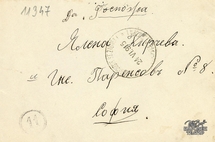 11947
Да Госпожа
Ялена Кирчева.
и Ген. Паренсовъ № 8.
София